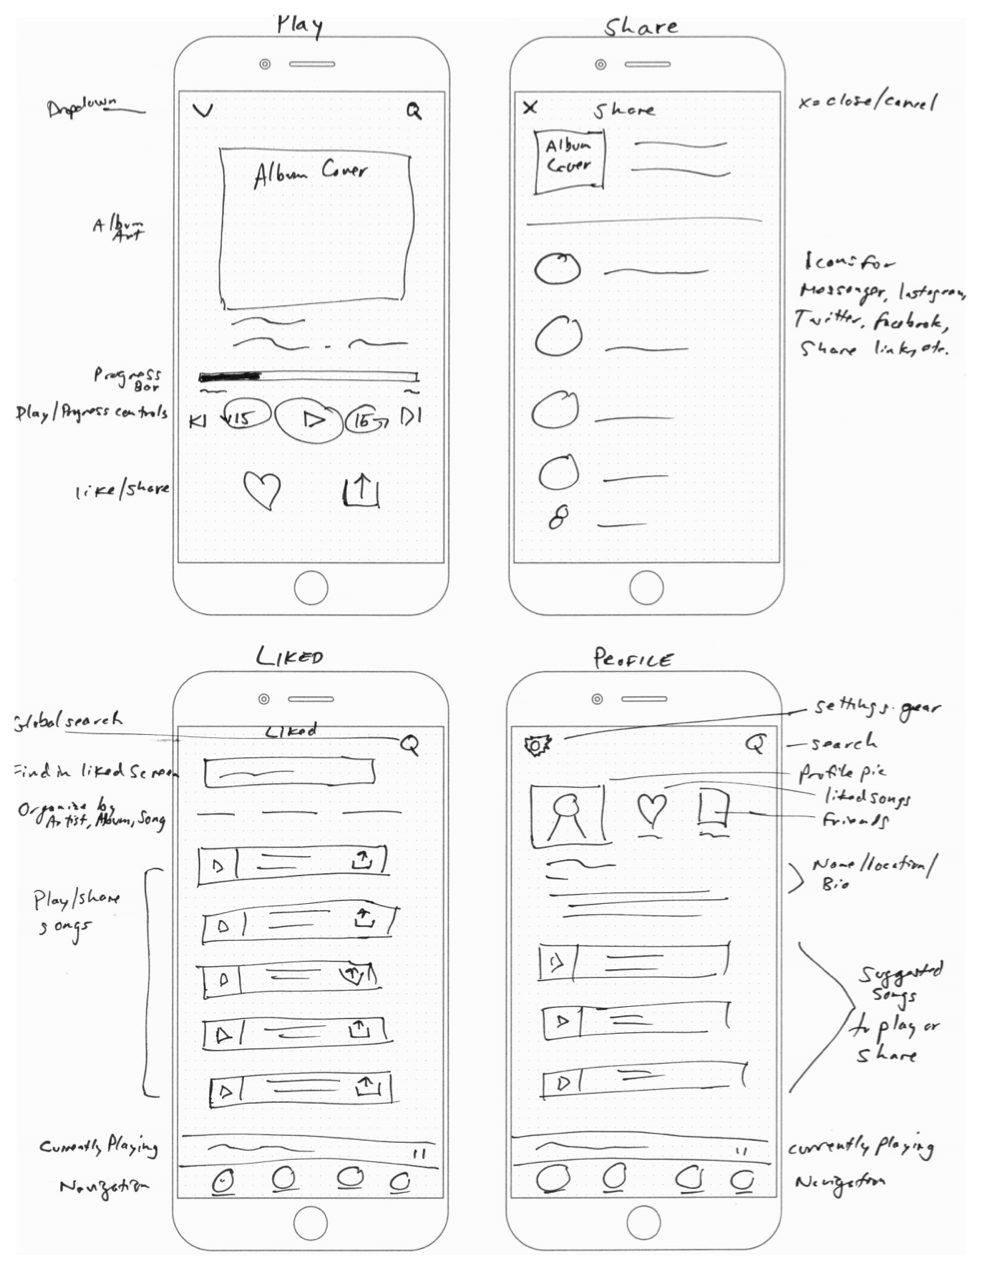 Play
Dropdown
Album Cover
Album
Art
Progress
Bar
Play/Progress controls
15
15
like/share
Share
x=close/cancel
X Share
Album
Cover
Icons for
Messenger, Instagram,
Twitter, facebook,
Share link, etc.
LIKED
Global search
Liked
Find in liked screen
Organize by
Artist, Album, Song
Play/share
songs
Currently Playing
Navigation
PROFILE
settings gear
search
Profile pic
liked songs
friends
Name/location/
Bio
Suggested
Songs
to play or
share
currently playing
Navigation